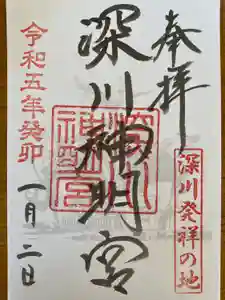 奉拝
深川発祥の地
深川神明宮
令和五年癸卯
一月二日